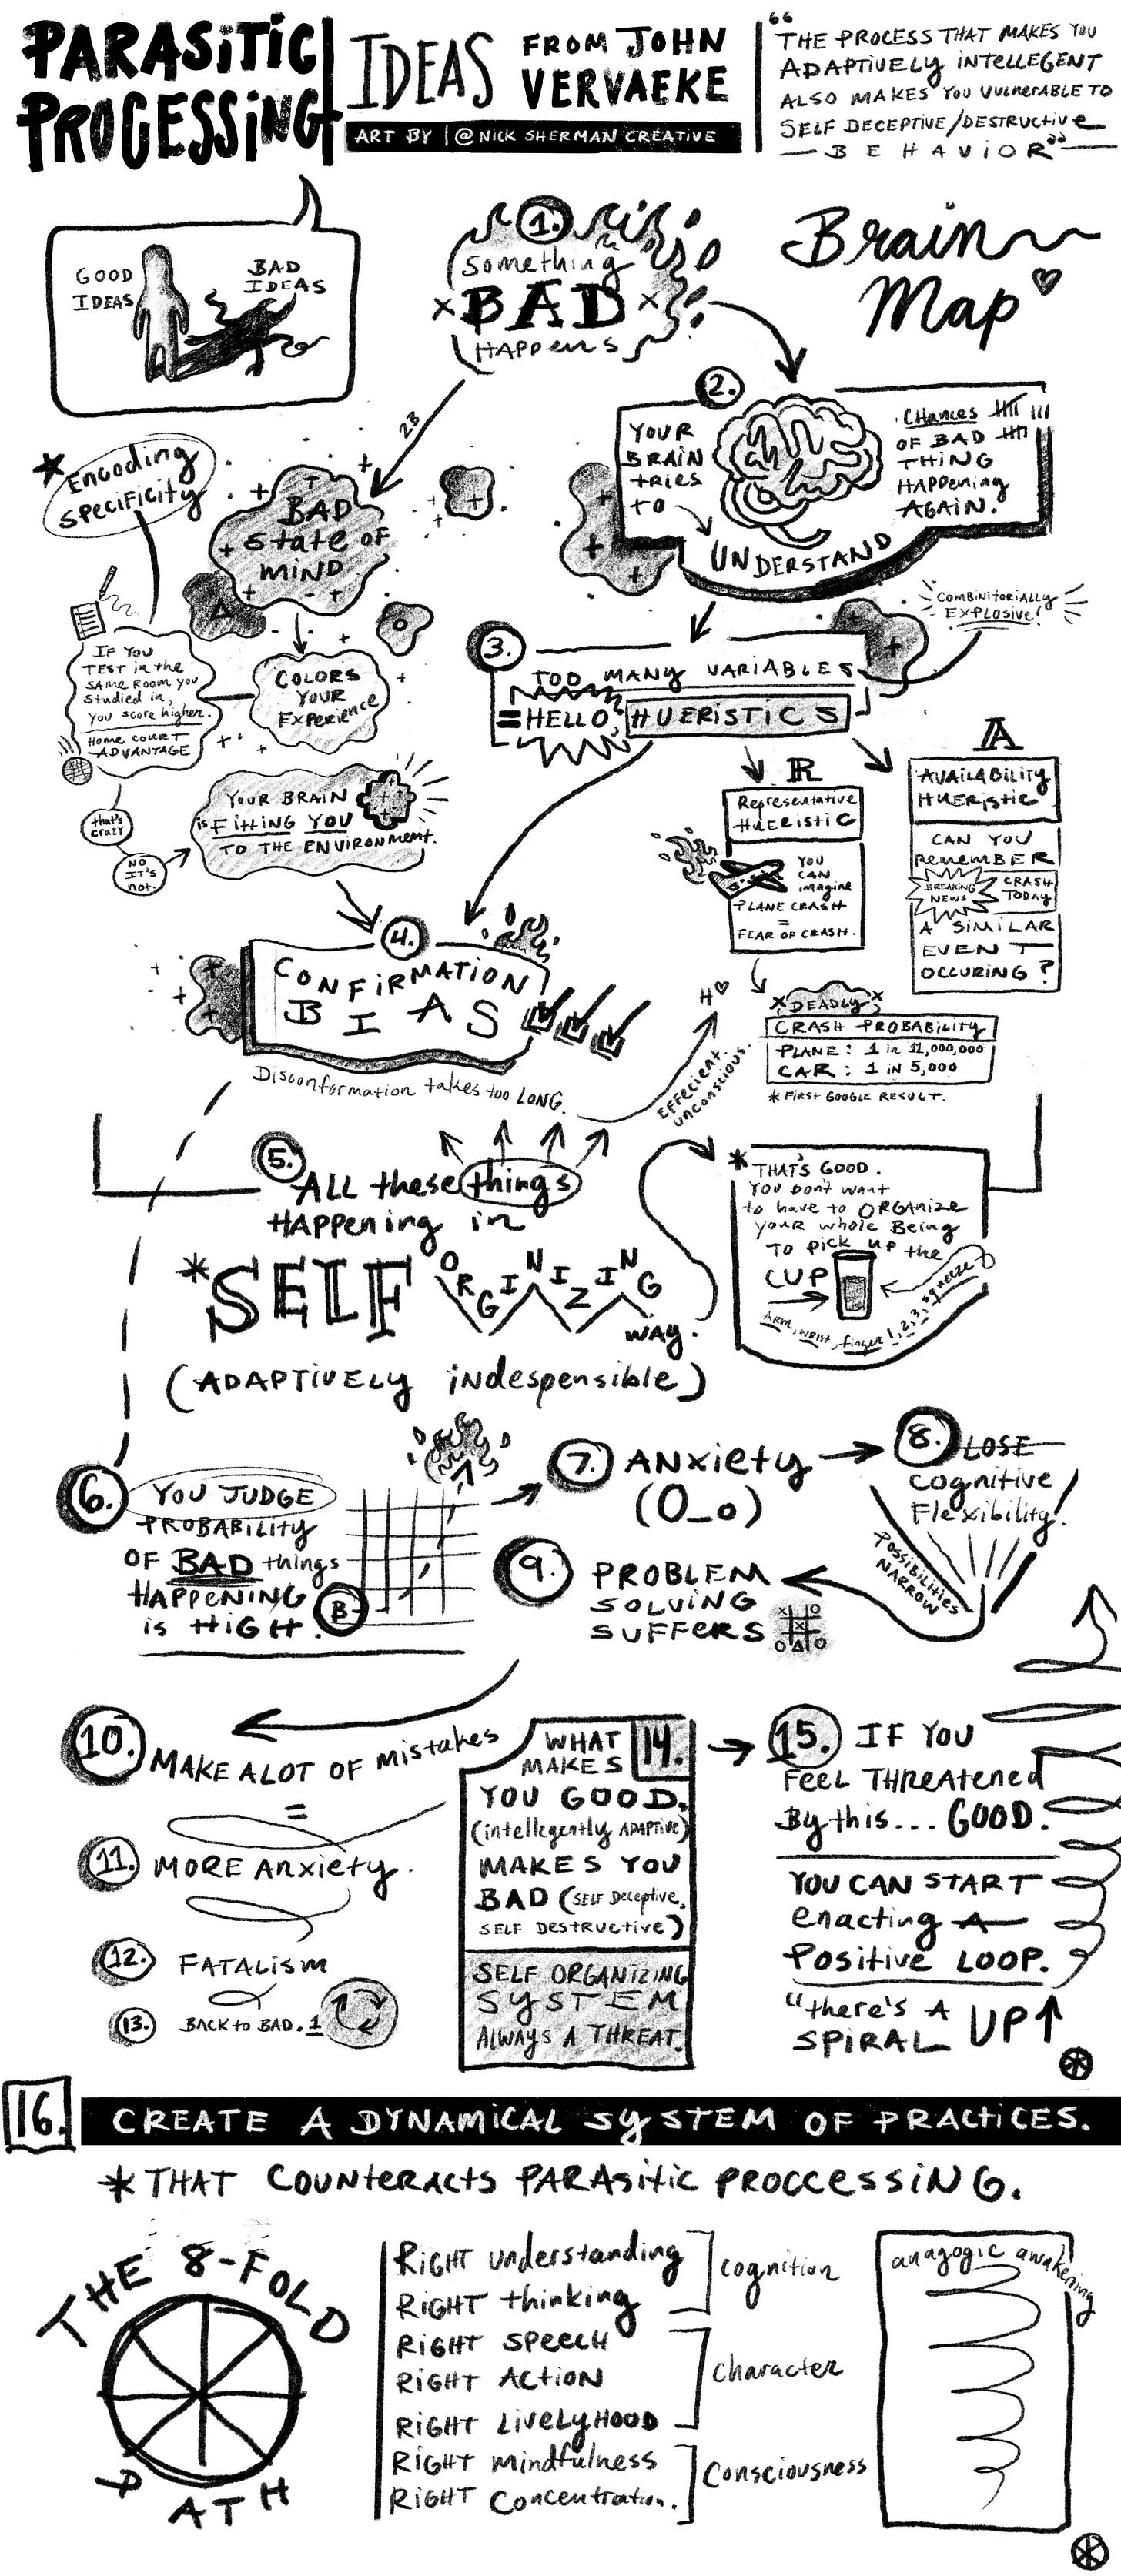 PARASITIC
PROCESSING
IDEAS
FROM JOHN
VERVAEKE
ART BY | @NICK SHERMAN CREATIVE
"THE PROCESS THAT MAKES YOU
ADAPTIVELY INTELLEGENT
ALSO MAKES YOU VULNERABLE TO
SELF DECEPTIVE/DESTRUCTIVE
BEHAVIOR"
GOOD
IDEAS
BAD
IDEAS
1.
Something
BAD
HAPPENS
Brain
Map
2.
YOUR
BRAIN
tries
to
UNDERSTAND
CHANCES
OF BAD
THING
HAPPENING
AGAIN.
2B
* Encoding
Specificity
BAD
State OF
MIND
COLORS
YOUR
EXPERIENCE
IF YOU
TEST in the
SAME ROOM YOU
Studied in,
YOU score higher.
HOME COURT
ADVANTAGE
that's
crazy
NO
IT'S
not.
YOUR BRAIN
is FITTING YOU
TO THE ENVIRONMENT.
COMBINITORIALLY
EXPLOSIVE!
3.
TOO MANY VARIABLES
= HELLO, HUERISTICS
R
Representative
HUERISTIC
YOU
CAN
imagine
PLANE CRASH
=
FEAR OF CRASH.
A
AVAILABILITY
HUERISTIC
CAN YOU
remember
BREAKING
NEWS
CRASH
TODAY
A SIMILAR
EVENT
OCCURING?
DEADLY
CRASH PROBABILITY
PLANE: 1 in 11,000,000
CAR: 1 IN 5,000
* FIRST GOOGLE RESULT.
4.
CONFIRMATION
BIAS
Disconformation takes too LONG.
H
EFFECIENT.
unconscious.
5.
ALL these things
HAPPENING in
*SELF ORGINIZING
WAY.
(ADAPTIVELY indespensible)
* THAT'S GOOD.
YOU DON'T WANT
to have to ORGANIZE
YOUR WHOLE BEING
TO PICK UP the
CUP
ARM, WRIST, finger 1, 2, 3, squeeze
6.
YOU JUDGE
PROBABILITY
OF BAD things
HAPPENING
is HIGH.
B
7. ANXIETY
(O_o)
8. LOSE
COGNITIVE
Flexibility!
POSSIBILITIES
NARROW
9. PROBLEM
SOLVING
SUFFERS
10. MAKE A LOT OF mistakes
=
11. MORE ANXIETY.
12. FATALISM
13. BACK to BAD. 1
14.
WHAT
MAKES
YOU GOOD.
(intellegently ADAPTIVE)
MAKES YOU
BAD (SELF Deceptive,
SELF DESTRUCTIVE)
SELF ORGANIZING
SYSTEM
ALWAYS A THREAT.
15. IF YOU
FEEL THREATENED
By this... GOOD.
YOU CAN START
enacting A
Positive LOOP.
"there's A
SPIRAL UP
16. CREATE A DYNAMICAL SYSTEM OF PRACTICES.
* THAT COUNTERACTS PARASITIC PROCCESSING.
THE 8-FOLD
PATH
RIGHT understanding
RIGHT thinking
cognition
RIGHT SPEECH
RIGHT ACTION
RIGHT LIVELYHOOD
character
RIGHT mindfulness
RIGHT Concentration.
Consciousness
anagogic awakening